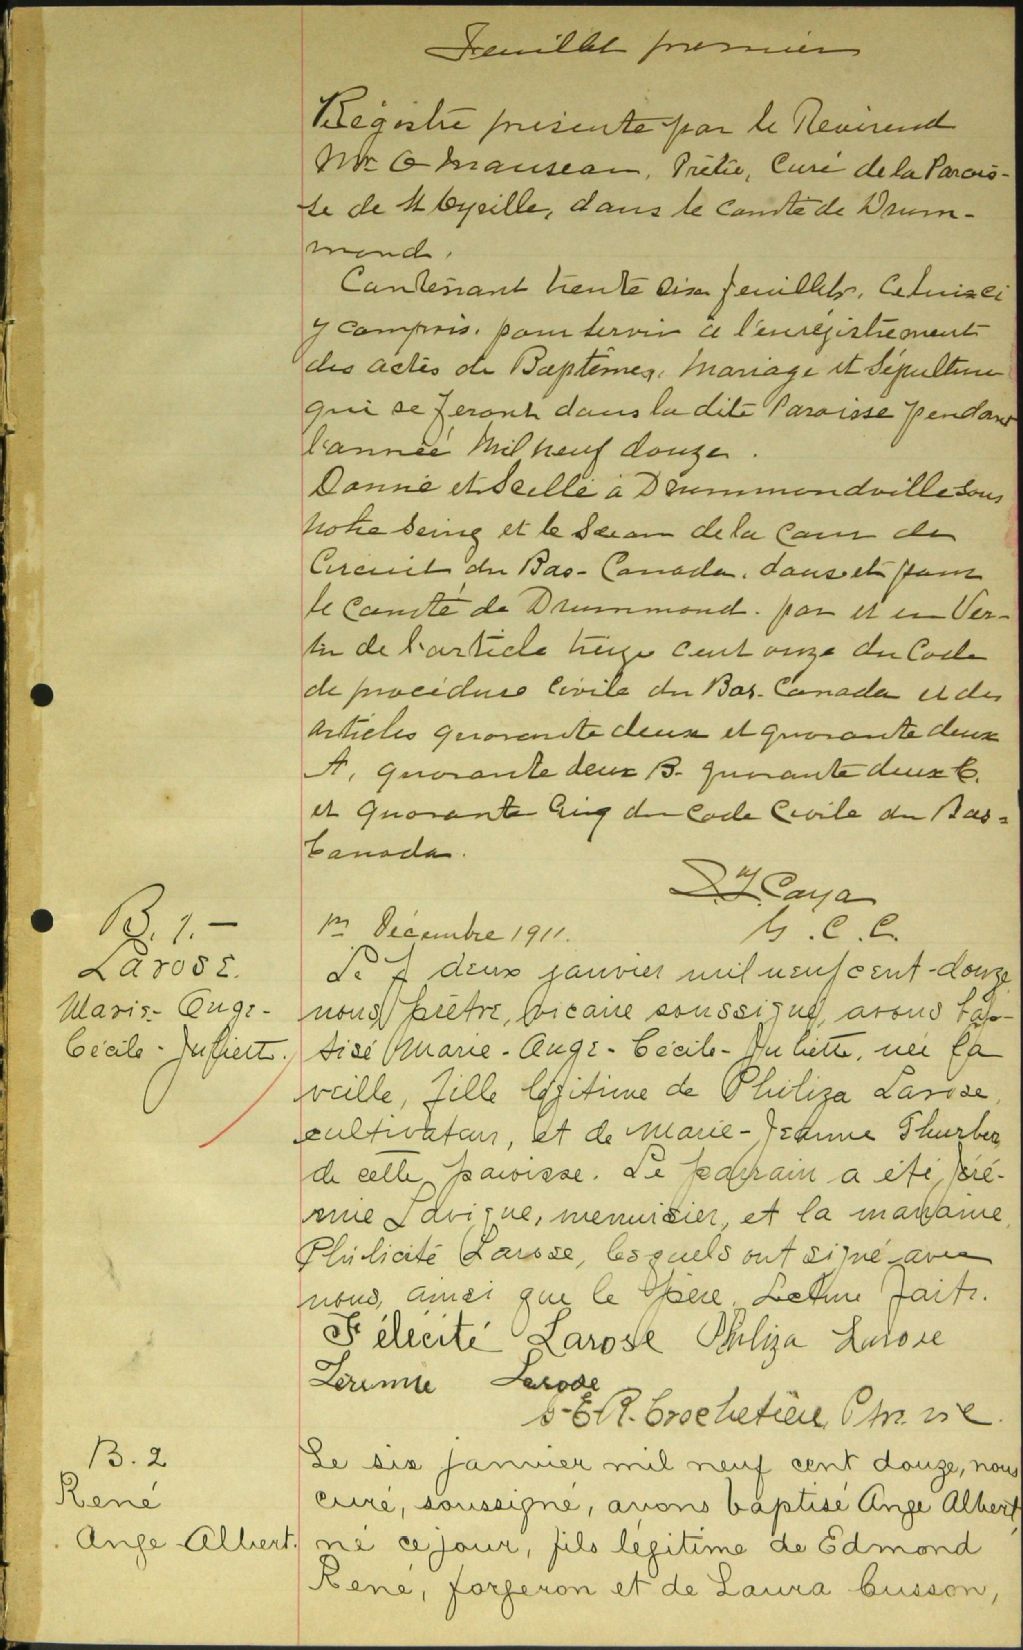 Feuillet premier
Régistre présenté par le Révérend
Mr O Manseau, Prêtre, Curé de la Parois-
se de St Cyrille, dans le comté de Drum-
mond.
Contenant trente six feuillets, celui-ci
y compris, pour servir à l'enrégistrement
des actes de Baptêmes, Mariage et Sépulture
qui se feront dans la dite Paroisse pendant
l'année Mil neuf douze.
Donné et Scellé à Drummondville sous
notre Seing et le Sceau de la Cour de
Circuit du Bas-Canada, dans et pour
le comté de Drummond. par et en Ver-
tu de l'article treize cent onze du Code
de procédure Civile du Bas-Canada et des
articles quarante deux et quarante deux
A, quarante deux B- quarante deux C.
et quarante Cinq du Code Civile du Bas-
Canada.
Caya
G. C. C.
1er Décembre 1911.
B. 1. -
Larose.
Marie-Ange-
Cécile-Juliette.
Le deux janvier mil neuf cent-douze
nous, prêtre, vicaire soussigné, avons bap-
tisé Marie-Ange-Cécile-Juliette, née la
veille, fille légitime de Philiza Larose,
cultivateur, et de Marie-Jeanne Thurber,
de cette paroisse. Le parrain a été, Jéré-
mie Lavigne, menuisier, et la marraine,
Philicité Larose, lesquels ont signé avec
nous, ainsi que le père. Lecture faite.
Félécité Larose Philiza Larose
Jérémie Larose
E. R. Crochetière, Ptre. vic.
B. 2
René
Ange Albert.
Le six janvier mil neuf cent douze, nous
curé, soussigné, avons baptisé Ange Albert,
né ce jour, fils légitime de Edmond
René, forgeron et de Laura Cusson,